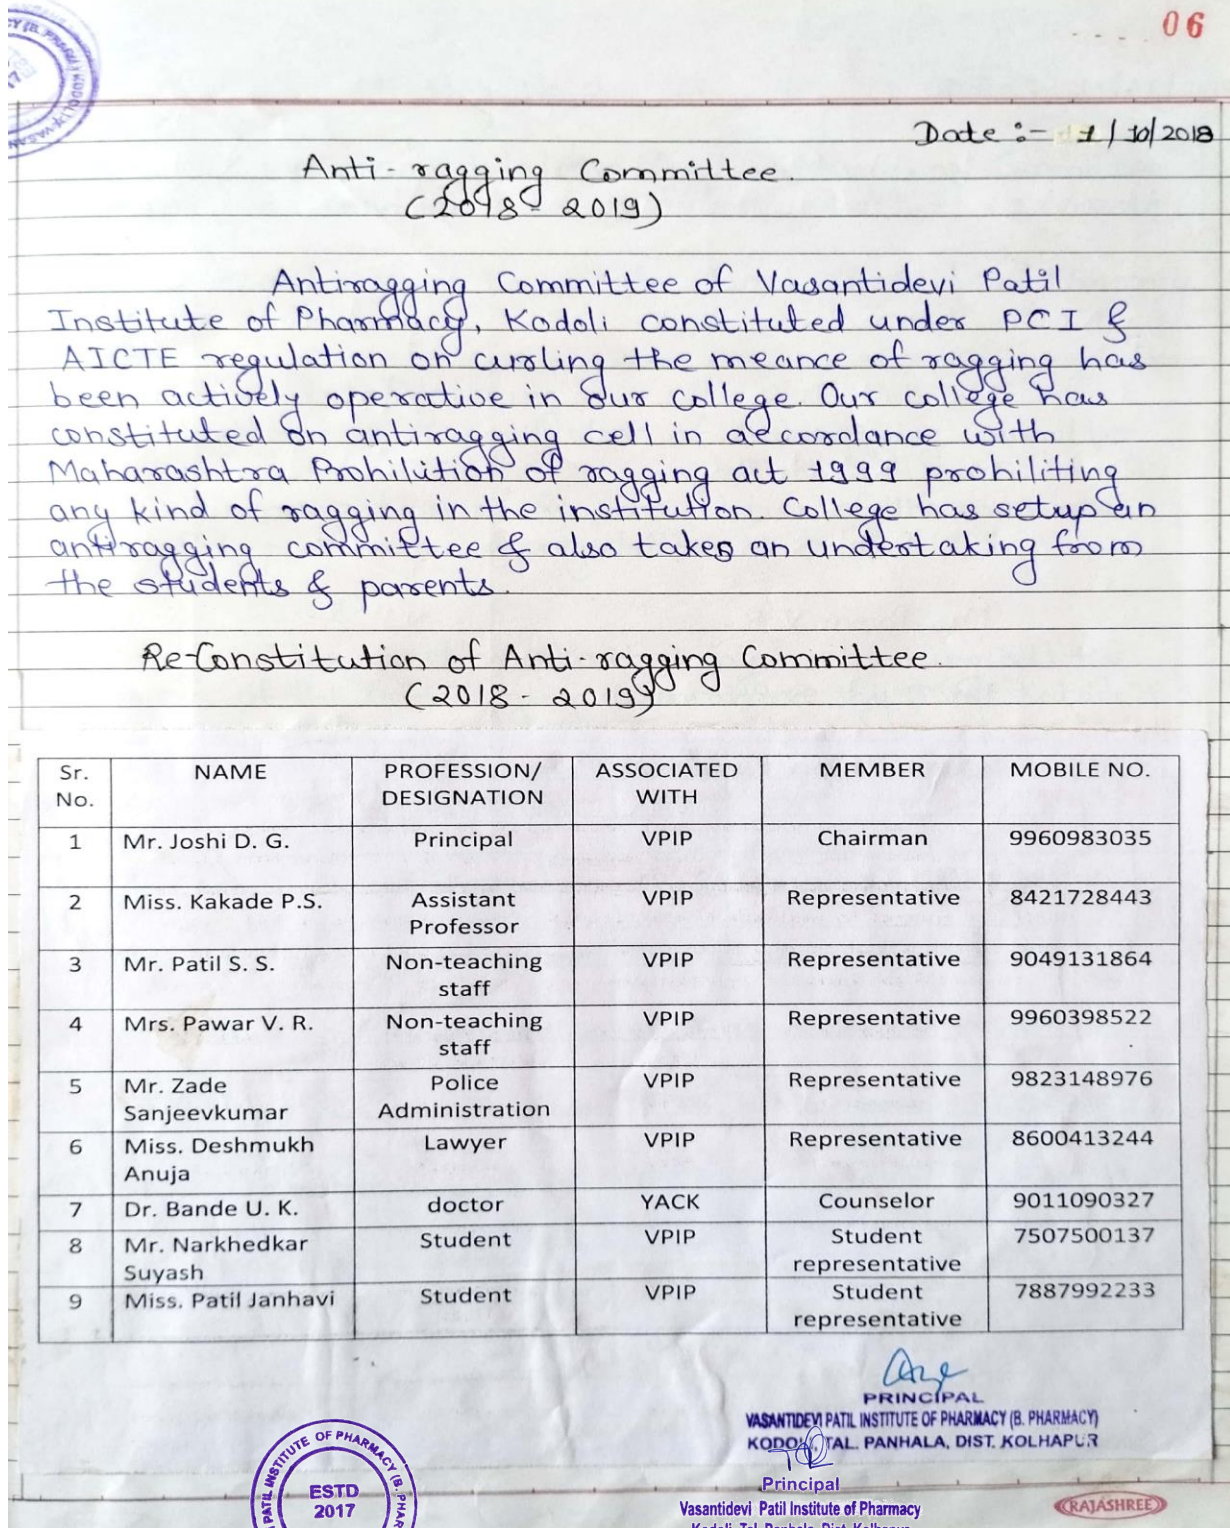 06
Date :- 1/10/2018
Anti-ragging Committee.
(2018-2019)
Antiragging Committee of Vasantidevi Patil
Institute of Pharmacy, Kodoli constituted under PCI &
AICTE regulation on curling the meance of ragging has
been actively operative in our college. Our college has
constituted on antiragging cell in accordance with
Maharashtra Prohilution of ragging act 1999 prohiliting
any kind of ragging in the institution. College has setup an
antiragging committee & also takes an undertaking from
the students & parents.
Re-Constitution of Anti-ragging Committee.
(2018-2019)
Sr. No. NAME PROFESSION/ DESIGNATION ASSOCIATED WITH MEMBER MOBILE NO.
1 Mr. Joshi D. G. Principal VPIP Chairman 9960983035
2 Miss. Kakade P.S. Assistant Professor VPIP Representative 8421728443
3 Mr. Patil S. S. Non-teaching staff VPIP Representative 9049131864
4 Mrs. Pawar V. R. Non-teaching staff VPIP Representative 9960398522
5 Mr. Zade Sanjeevkumar Police Administration VPIP Representative 9823148976
6 Miss. Deshmukh Anuja Lawyer VPIP Representative 8600413244
7 Dr. Bande U. K. doctor YACK Counselor 9011090327
8 Mr. Narkhedkar Suyash Student VPIP Student representative 7507500137
9 Miss. Patil Janhavi Student VPIP Student representative 7887992233
PRINCIPAL
VASANTIDEVI PATIL INSTITUTE OF PHARMACY (B. PHARMACY)
KODOLI, TAL. PANHALA, DIST. KOLHAPUR
Principal
Vasantidevi Patil Institute of Pharmacy
Kodoli, Tal. Panhala, Dist. Kolhapur
PATIL INSTITUTE OF PHARMACY (B. PHAR
ESTD
2017
RAJASHREE